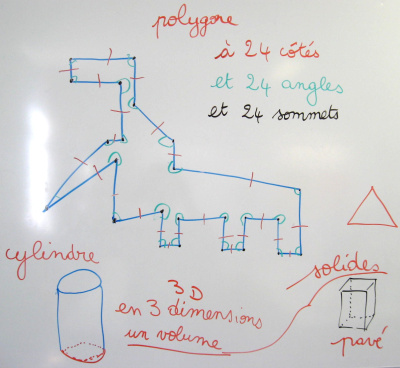 polygone
à 24 côtés
et 24 angles
et 24 sommets
cylindre
3D
en 3 dimensions
un volume
solides
pavé